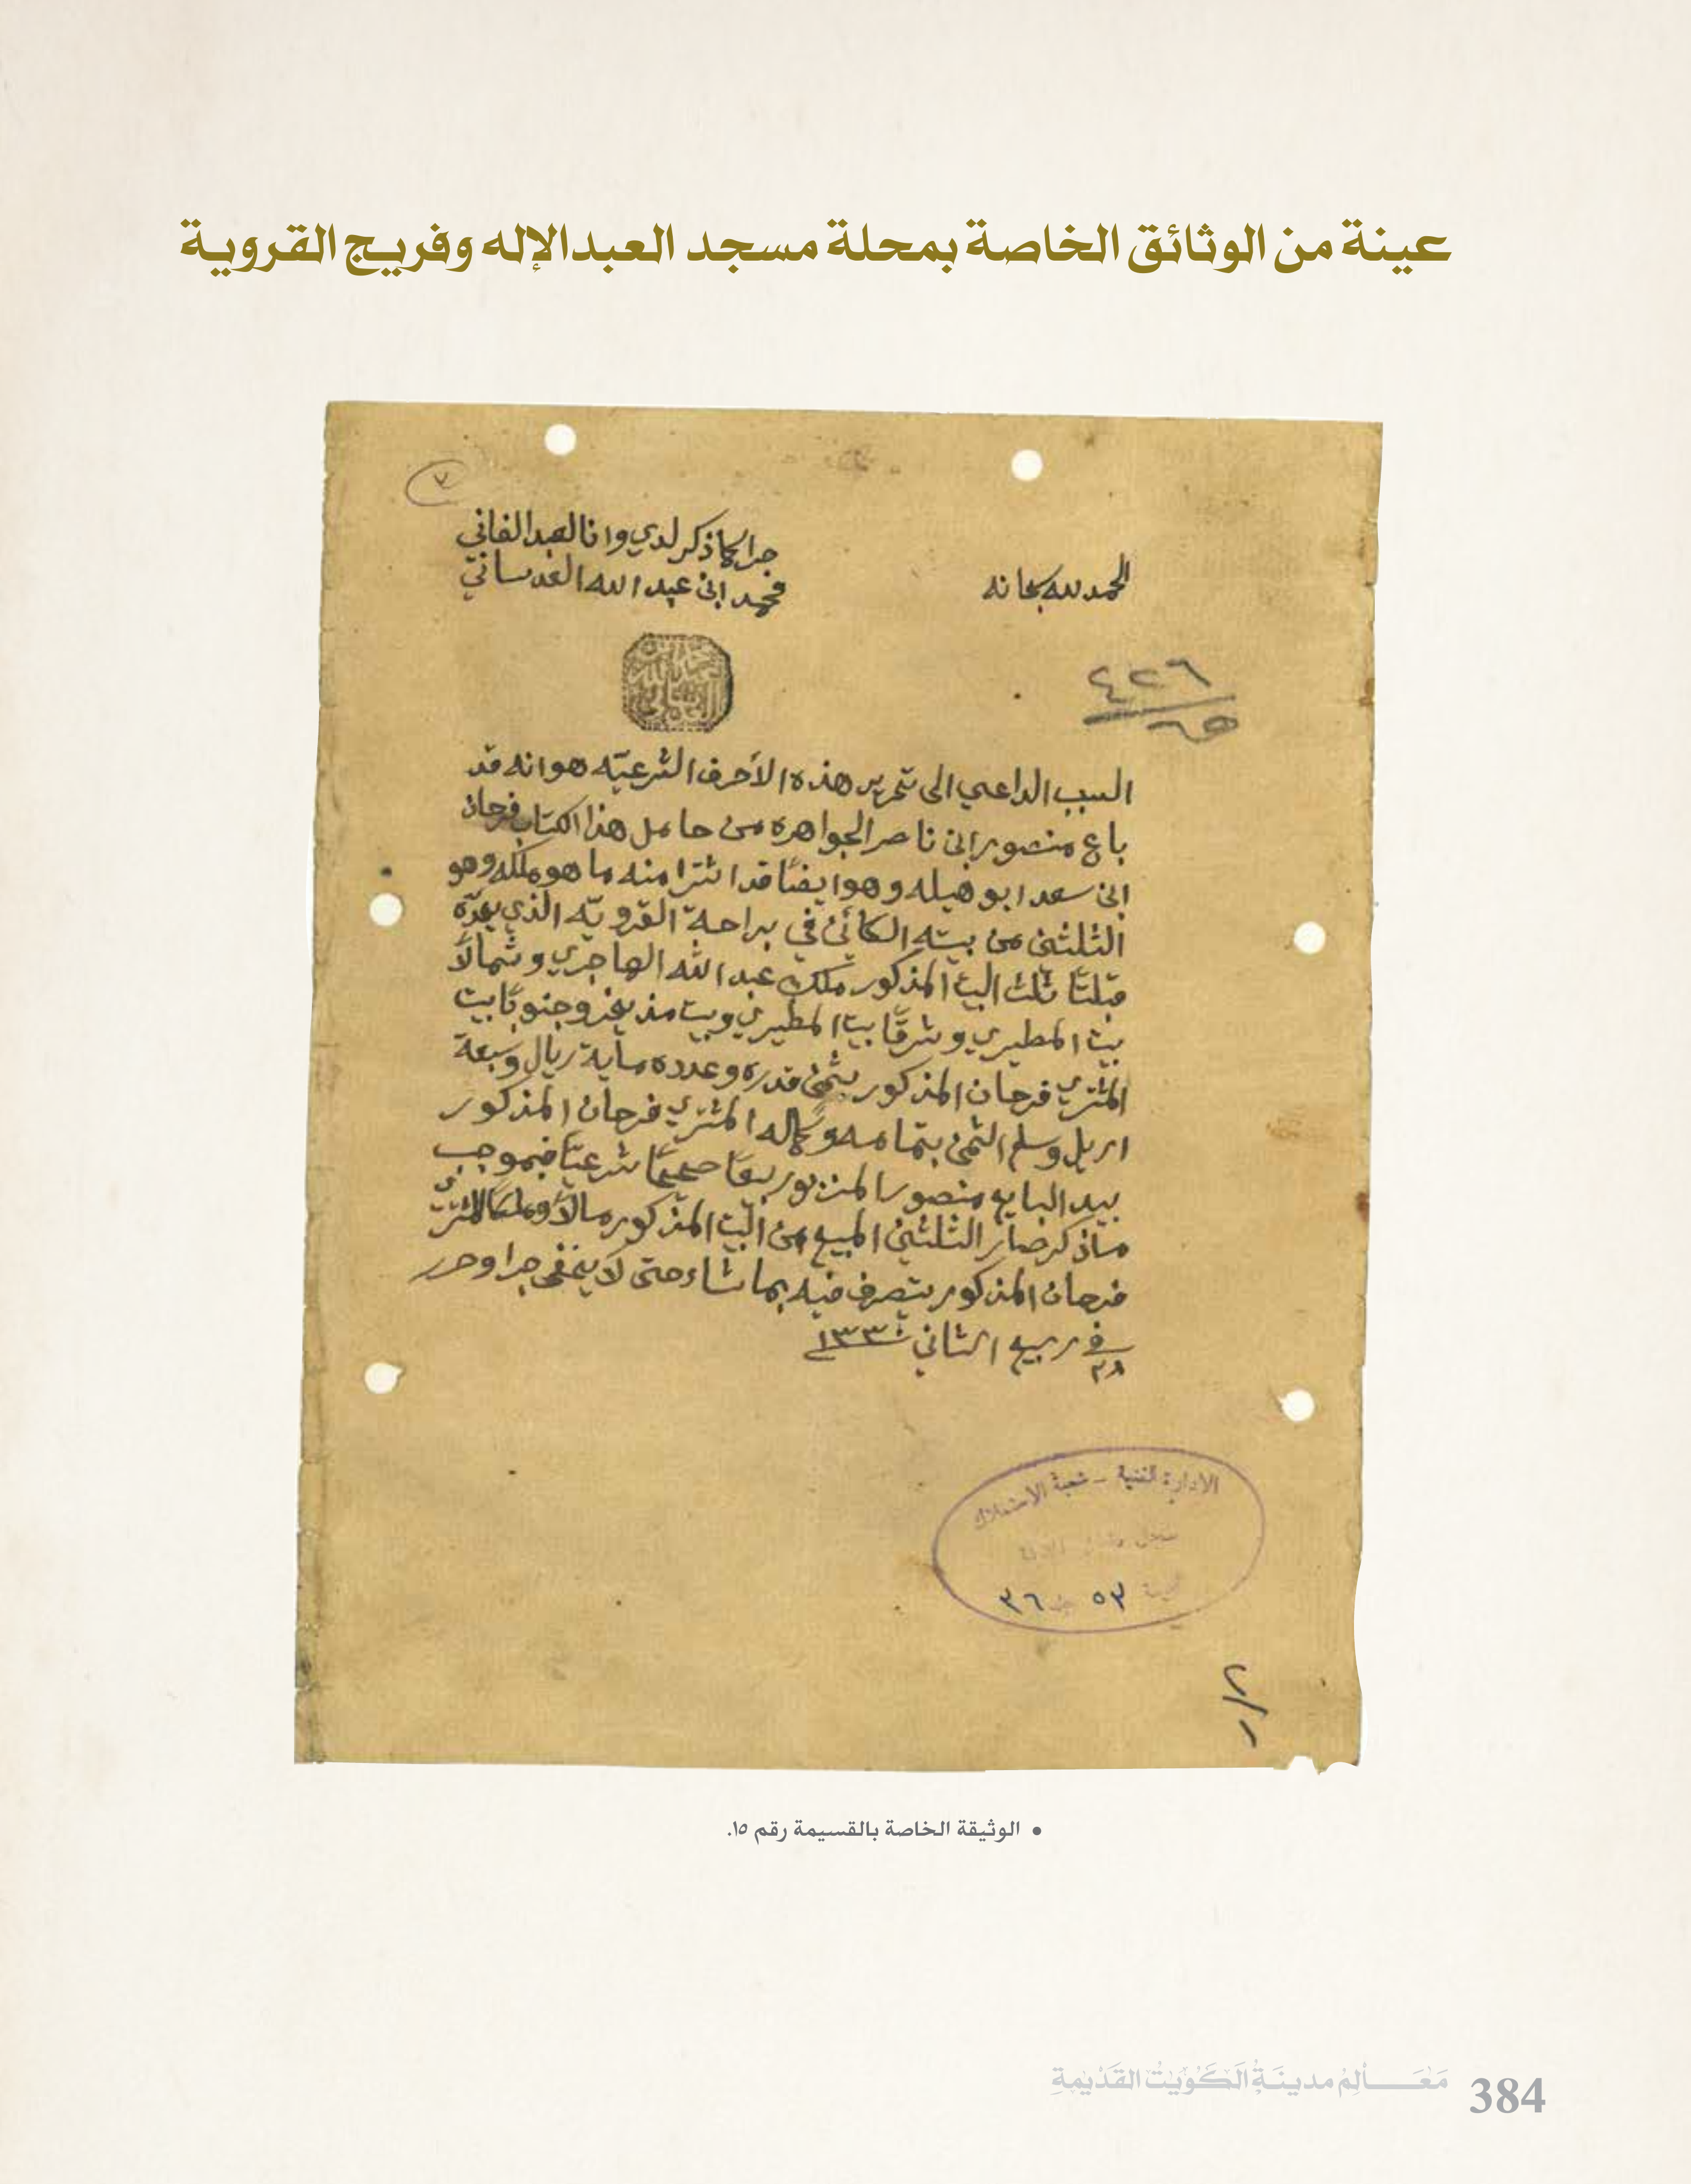 عينة من الوثائق الخاصة بمحلة مسجد العبدالإله وفريج القروية
٧
الحمد لله سبحانه
جرا كما ذكر لدي وانا العبد الفاني
محمد ابن عبد الله العدساني
٤٢٦
٦٥
السبب الداعي الى تحرير هذه الاحرف الشرعيّه هو انه قد
باع منصور ابن ناصر الجواهره من حامل هذا الكتاب فرحان
ابن سعد ابو هيله وهو ايضًا قد اشترا منه ما هو ملكه وهو
الثلثين من بيته الكائن في براحة القرويّه الذي يحدّه
قبلتًا ثلث البيت المذكور ملك عبد الله الهاجري وشمالًا
بيت المطيري وشرقًا بيت المطيري وبيت منيخر وجنوبًا بيت
المشتري فرحان المذكور بثمن قدره وعدده ماية ريال وسبعة
اريل وسلم الثمن بتمامه وكماله المشتري فرحان المذكور
بيد البايع منصور المزبور بيعًا صحيحًا شرعيًّا فبموجب
ماذكر صار الثلثين المبيع من البيت المذكور مالًا وملكًا للمشتري
فرحان المذكور يتصرف فيه بما شاء حتى لا يخفى جرا وحرر
في ٢٨ ربيع الثاني ١٣٣٠
الادارة الفنية - شعبة الاستملاك
٥٣ ٣٦
• الوثيقة الخاصة بالقسيمة رقم ١٥.
مَعَالِمُ مدينَةِ الكُوَيْتُ القَدْيمةِ 384